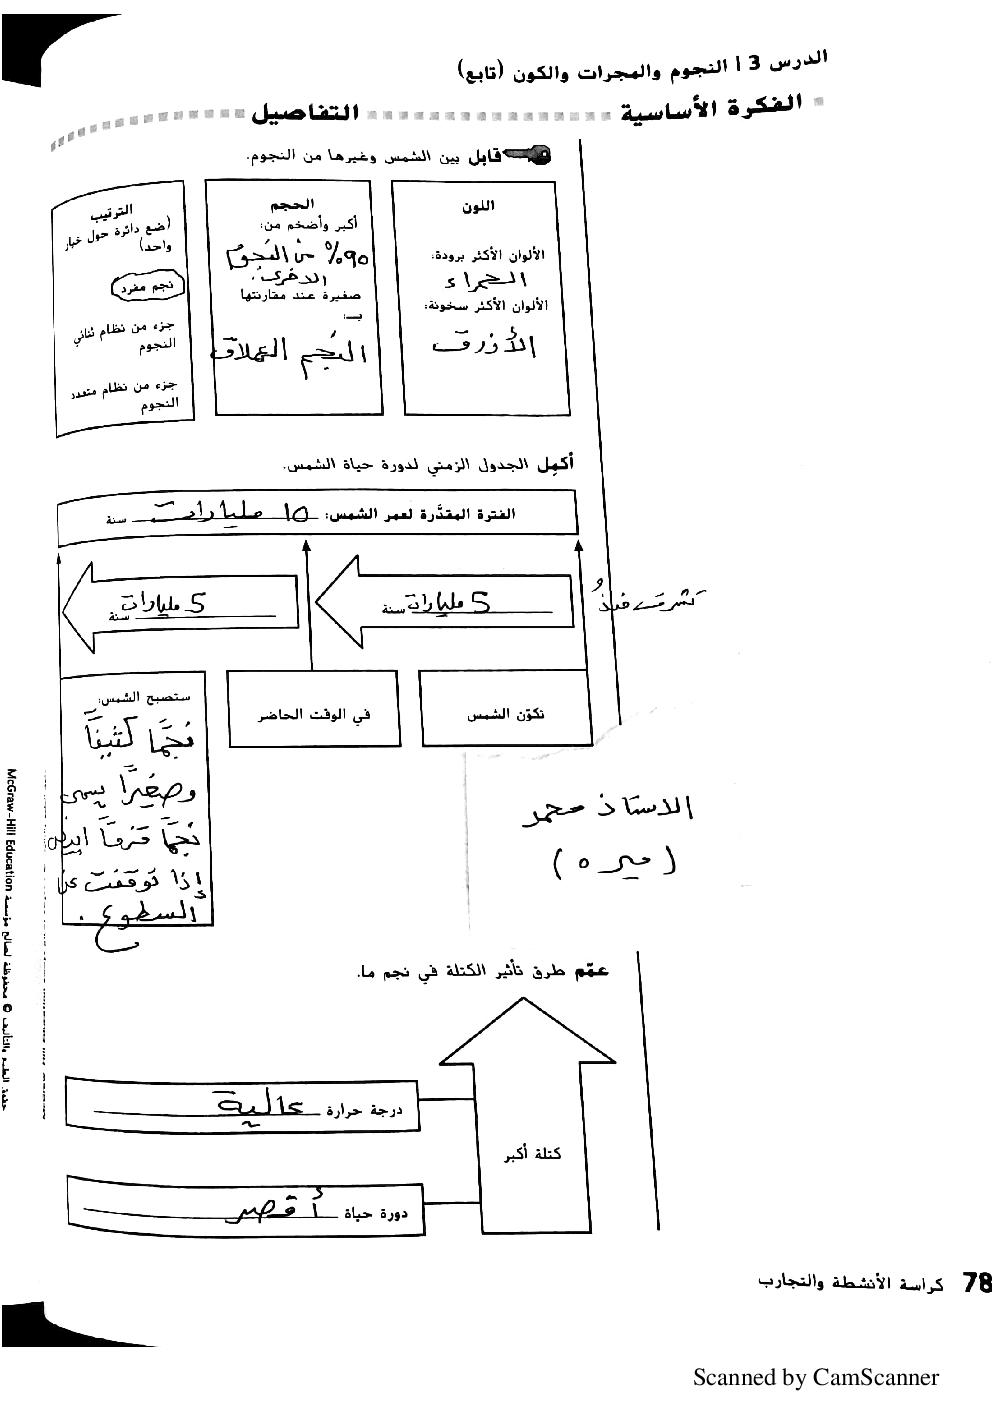 الدرس 3 | النجوم والمجرات والكون (تابع)
الفكرة الأساسية
التفاصيل
قابل بين الشمس وغيرها من النجوم.
اللون
الألوان الأكثر برودة:
الحمراء
الألوان الأكثر سخونة:
الأزرق
الحجم
أكبر وأضخم من:
90% من النجوم
الأخرى.
صغيرة عند مقارنتها
بـ:
النجم العملاق
الترتيب
(ضع دائرة حول خيار
واحد)
نجم مفرد
جزء من نظام ثنائي
النجوم
جزء من نظام متعدد
النجوم
أكمل الجدول الزمني لدورة حياة الشمس.
الفترة المقدَّرة لعمر الشمس: 10 مليارات سنة
5 مليارات سنة
5 مليارات سنة
تكوّن الشمس
في الوقت الحاضر
ستصبح الشمس:
نجمًا كثيفاً
وصغيرًا يسمى
نجمًا قزماً أبيض
إذا توقفت عن
السطوع.
الاستاذ محمد
عمّم طرق تأثير الكتلة في نجم ما.
كتلة أكبر
درجة حرارة عالية
دورة حياة أقصر
حقوق الطبع والتأليف © محفوظة لصالح مؤسسة McGraw-Hill Education
78 كراسة الأنشطة والتجارب
Scanned by CamScanner